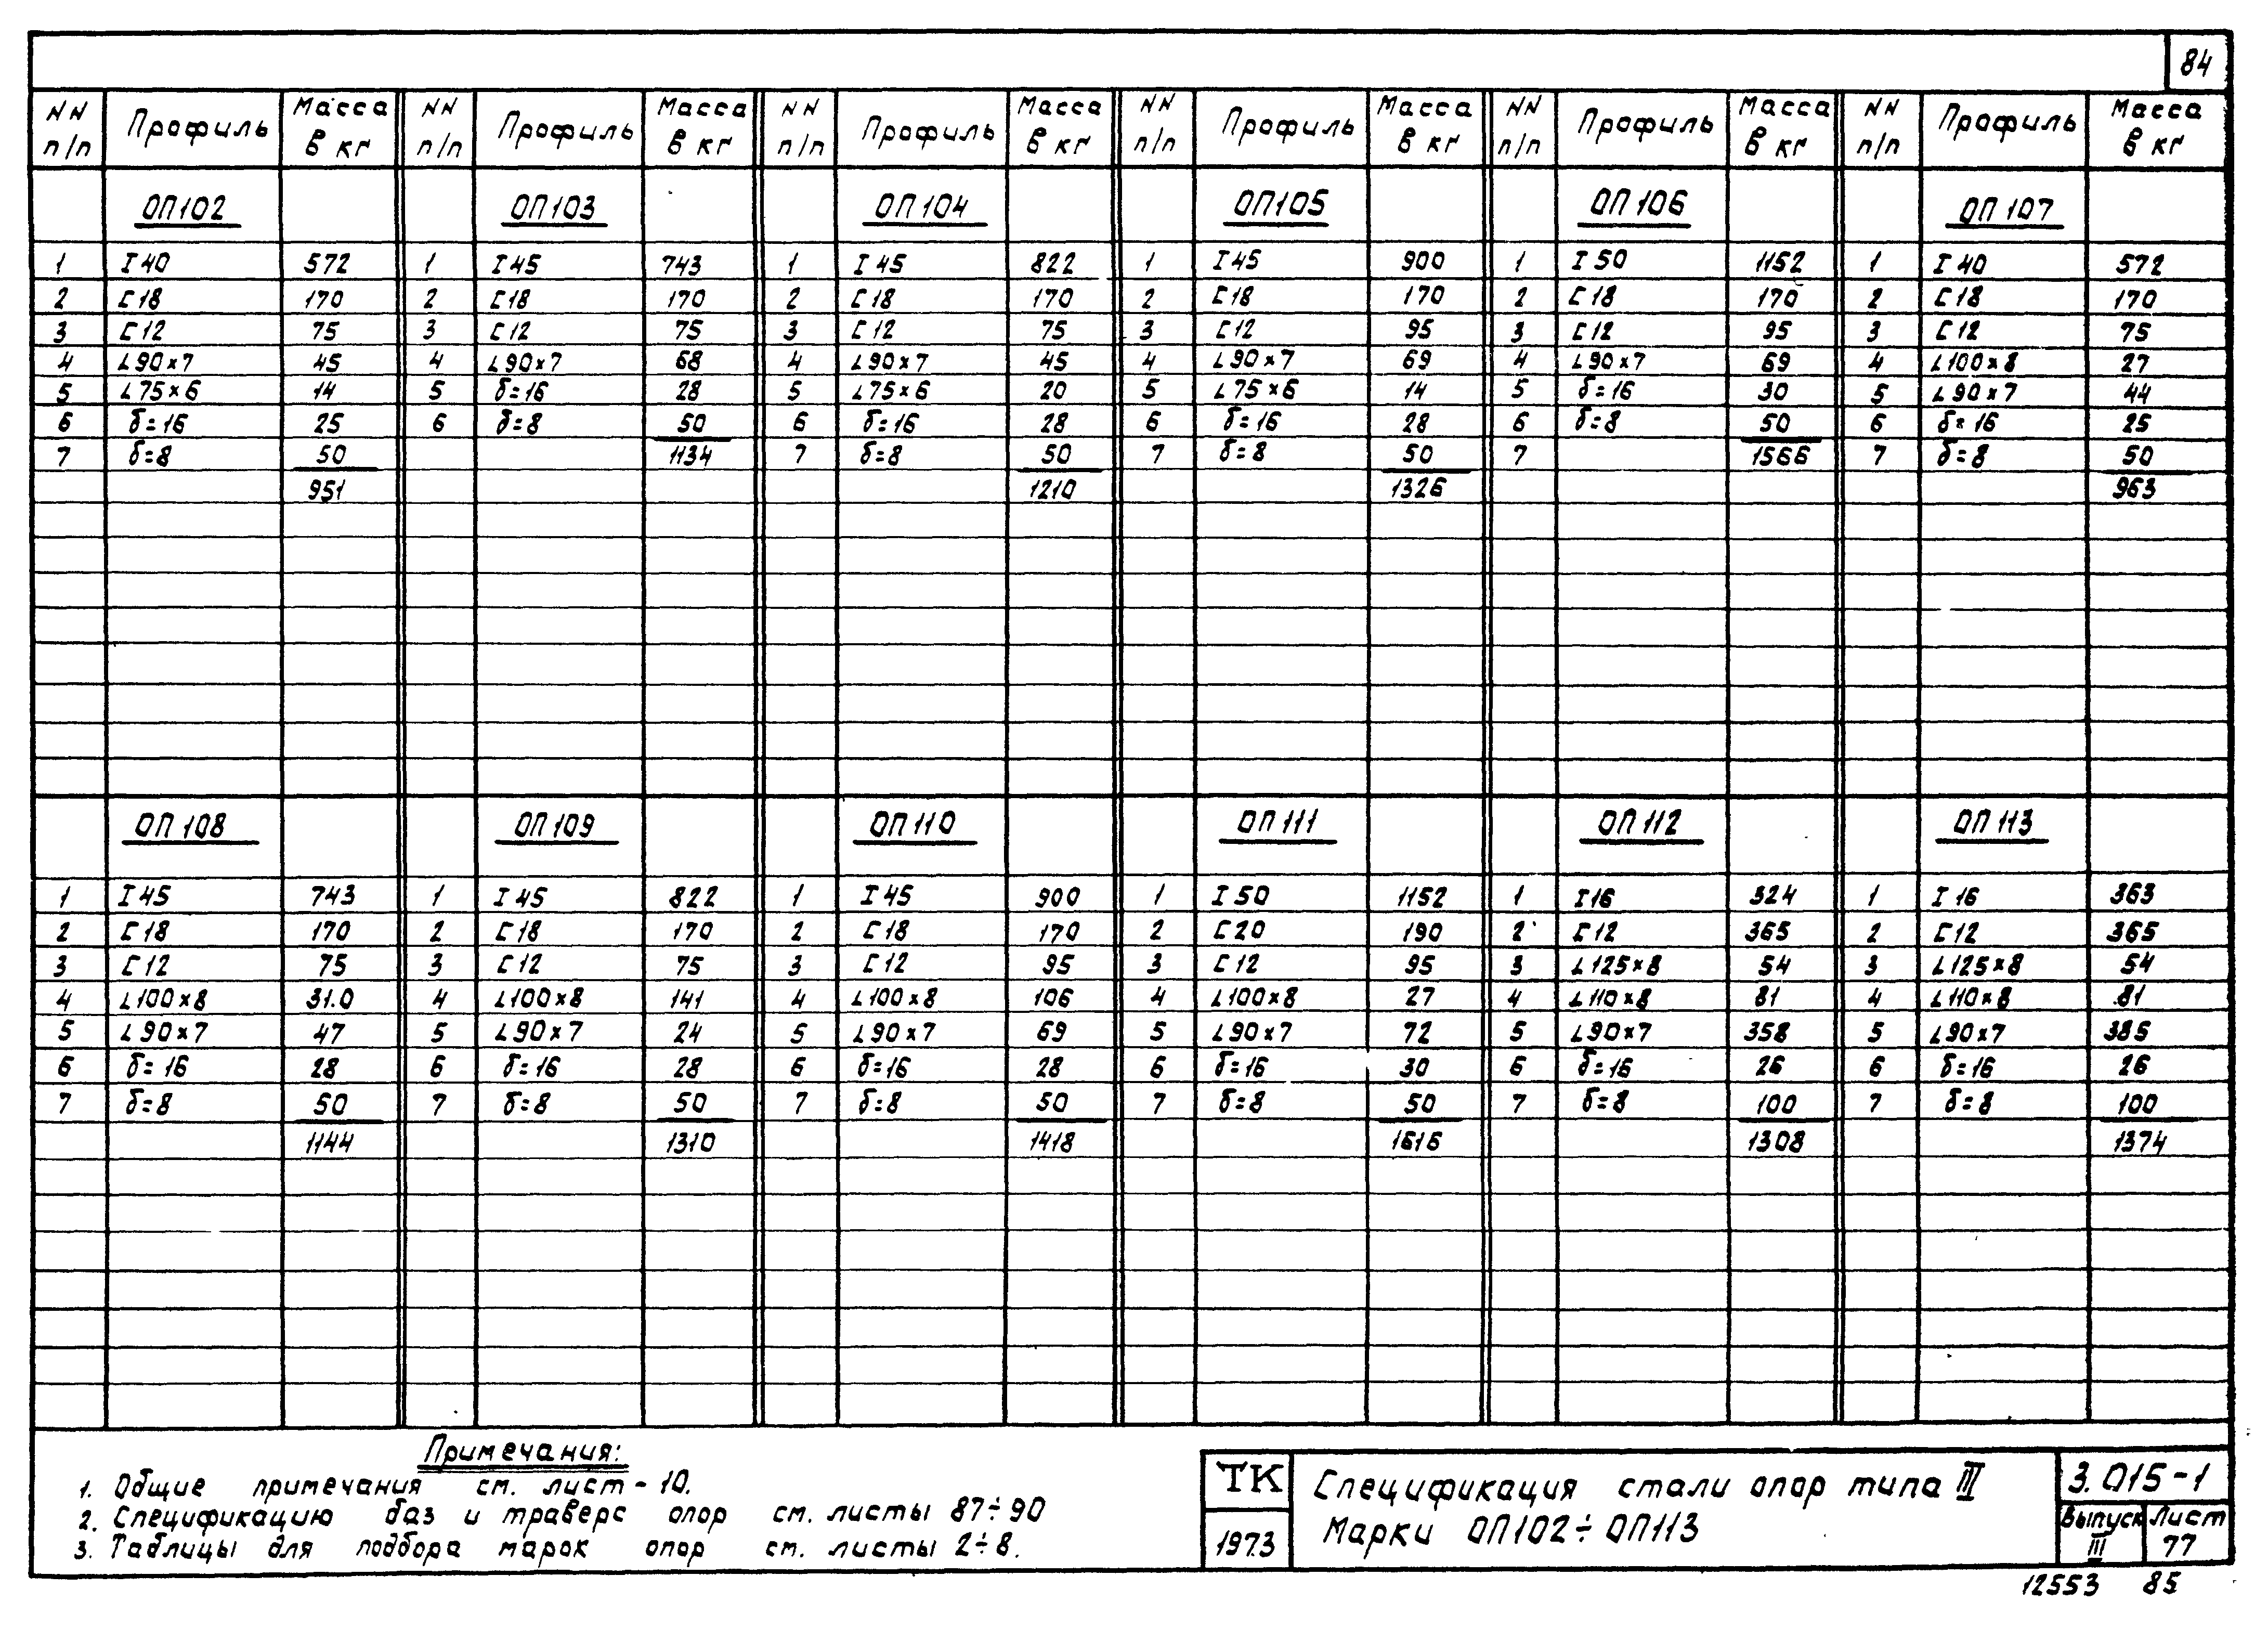 84
NN п/п Профиль Масса в кг NN п/п Профиль Масса в кг NN п/п Профиль Масса в кг NN п/п Профиль Масса в кг NN п/п Профиль Масса в кг NN п/п Профиль Масса в кг
ОП102 ОП103 ОП104 ОП105 ОП106 ОП107
1 I40 572 1 I45 743 1 I45 822 1 I45 900 1 I50 1152 1 I40 572
2 [18 170 2 [18 170 2 [18 170 2 [18 170 2 [18 170 2 [18 170
3 [12 75 3 [12 75 3 [12 75 3 [12 95 3 [12 95 3 [12 75
4 ∠90×7 45 4 ∠90×7 68 4 ∠90×7 45 4 ∠90×7 69 4 ∠90×7 69 4 ∠100×8 27
5 ∠75×6 14 5 δ=16 28 5 ∠75×6 20 5 ∠75×6 14 5 δ=16 30 5 ∠90×7 44
6 δ=16 25 6 δ=8 50 6 δ=16 28 6 δ=16 28 6 δ=8 50 6 δ=16 25
7 δ=8 50 1134 7 δ=8 50 7 δ=8 50 7 1566 7 δ=8 50
951 1210 1326 963
ОП108 ОП109 ОП110 ОП111 ОП112 ОП113
1 I45 743 1 I45 822 1 I45 900 1 I50 1152 1 I16 324 1 I16 363
2 [18 170 2 [18 170 2 [18 170 2 [20 190 2 [12 365 2 [12 365
3 [12 75 3 [12 75 3 [12 95 3 [12 95 3 ∠125×8 54 3 ∠125×8 54
4 ∠100×8 31.0 4 ∠100×8 141 4 ∠100×8 106 4 ∠100×8 27 4 ∠110×8 81 4 ∠110×8 81
5 ∠90×7 47 5 ∠90×7 24 5 ∠90×7 69 5 ∠90×7 72 5 ∠90×7 358 5 ∠90×7 385
6 δ=16 28 6 δ=16 28 6 δ=16 28 6 δ=16 30 6 δ=16 26 6 δ=16 26
7 δ=8 50 7 δ=8 50 7 δ=8 50 7 δ=8 50 7 δ=8 100 7 δ=8 100
1144 1310 1418 1616 1308 1374
Примечания:
1. Общие примечания см. лист-10.
2. Спецификацию баз и траверс опор см. листы 87÷90
3. Таблицы для подбора марок опор см. листы 2÷8.
ТК
1973
Спецификация стали опор типа III
Марки ОП102÷ОП113
3.015-1
Выпуск III
Лист 77
12553 85